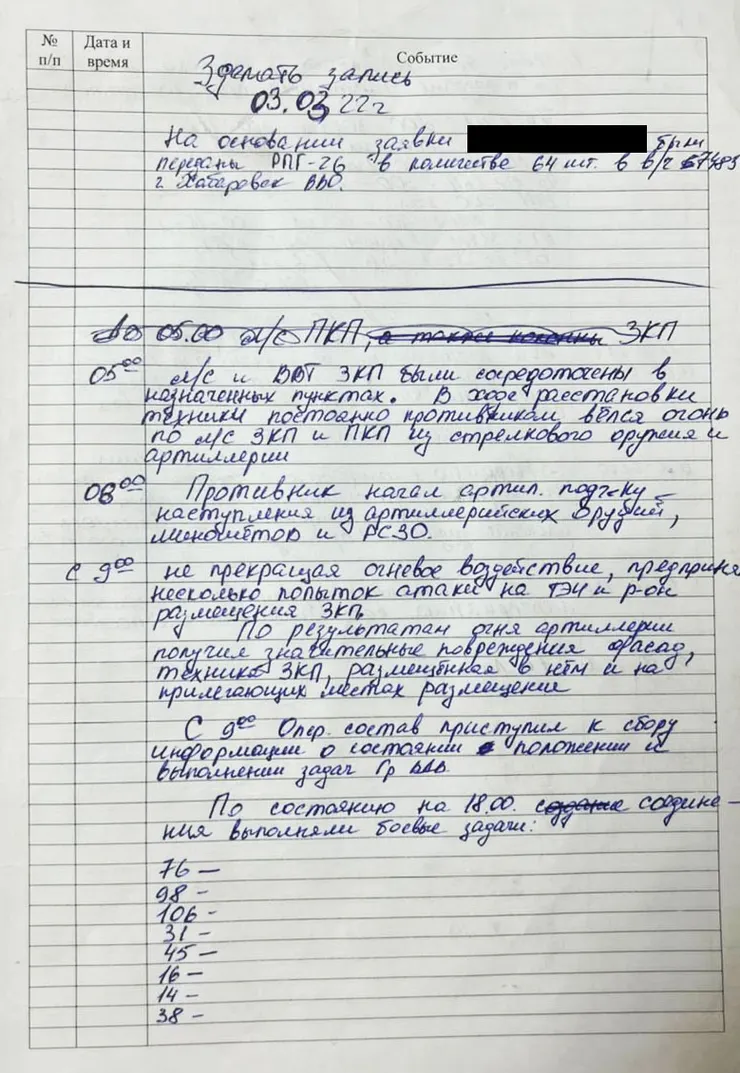 № п/п
Дата и время
Событие
Зделать запись
03.03 22г
На основании заявки были
переданы РПГ-26 в количестве 64 шт. в в/ч
г. Хабаровск ВВО.
До 05.00 л/с ПКП, а также ЗКП
05⁰⁰ л/с и ВВТ ЗКП были сосредоточены в
назначенных пунктах. В ходе расстановки
техники постоянно противником вёлся огонь
по л/с ЗКП и ПКП из стрелкового оружия и
артиллерии
08⁰⁰ Противник начал артил. подг-ку
наступления из артиллерийских орудий,
миномётов и РСЗО.
С 9⁰⁰ не прекращая огневое воздействие, предприня
несколько попыток атаки на ТЭЧ и р-он
размещения ЗКП.
По результатам огня артиллерии
получил значительные повреждения фасад,
техника ЗКП, размещённая в нём и на
прилегающих местах размещение
С 9⁰⁰ Опер. состав приступил к сбору
информации о состоянии положении и
выполнении задач Гр ВДВ.
По состоянию на 18.00. соедине-
ния выполняли боевые задачи:
76 –
98 -
106 -
31 -
45 -
16 -
14 -
38 -